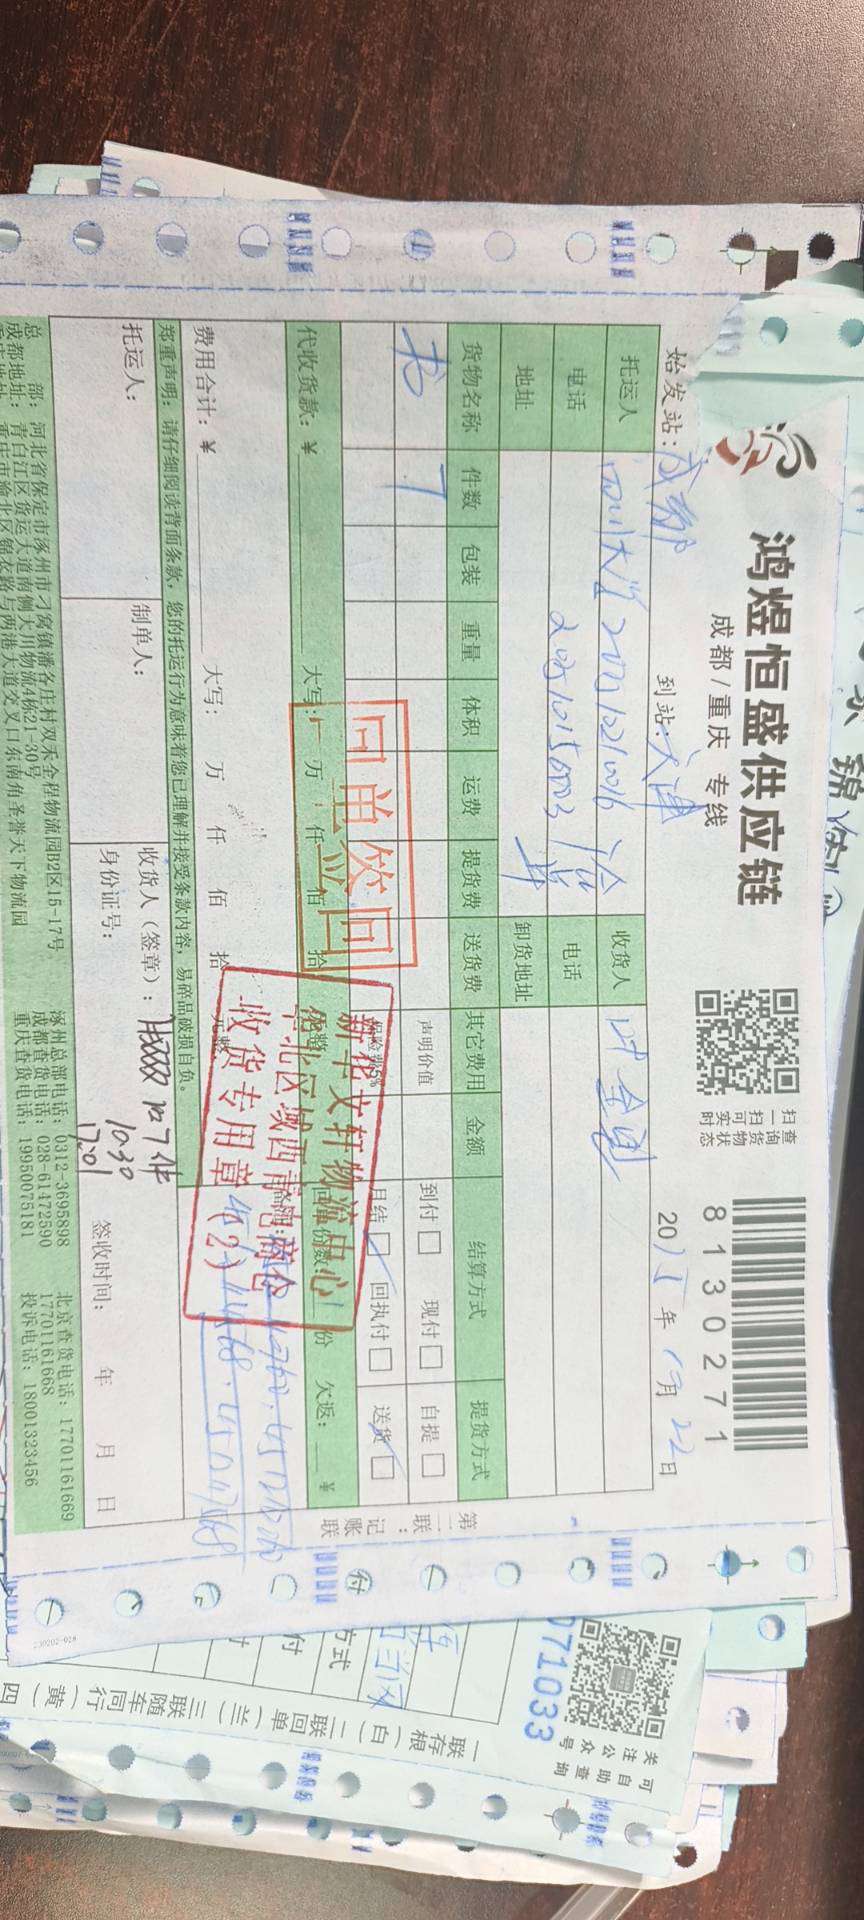 鸿煜恒盛供应链
成都/重庆 专线
扫一扫可实时
查询货物状态
8130271
始发站：成都 到站：大道
2025年10月22日
托运人 四川大学 202510210016 收货人
电话 202510150003 电话
地址 卸货地址
货物名称 件数 包装 重量 体积 运费 提货费 送货费 其它费用 金额 结算方式 提货方式
书 7
声明价值 到付 现付 自提
保险费5% 月结 回执付 送货
代收货款：￥ 大写： 万 仟 佰 拾 元整 回单份数：1份 欠返： ￥
费用合计：￥ 大写： 万 仟 佰 拾 元整 备注：
郑重声明：请仔细阅读背面条款，您的托运行为意味着您已理解并接受条款内容，易碎品破损自负。
托运人： 制单人： 收货人（签章）：
7件
10.30
身份证号： 签收时间： 年 月 日
回单签回
新华文轩物流中心
华北区域西南电商仓
收货专用章
（2）
总 部：河北省保定市涿州市刁窝镇潘各庄村双禾全程物流园B2区15-17号 涿州总部电话：0312-3695898 北京查货电话：17701161669
17701161668
成都地址：青白江区货运大道南侧大川物流4栋21-30号 成都查货电话：028-61472590
重庆地址：重庆市渝北区锦衣路与两港大道交叉口东南角圣誉天下物流园 重庆查货电话：19950075181 投诉电话：18001323456
第二联：记账联
230202-028
071033
可自助查询
关注公众号
一联存根（白）二联回单（兰）三联随车同行（黄）四
方式
付
付